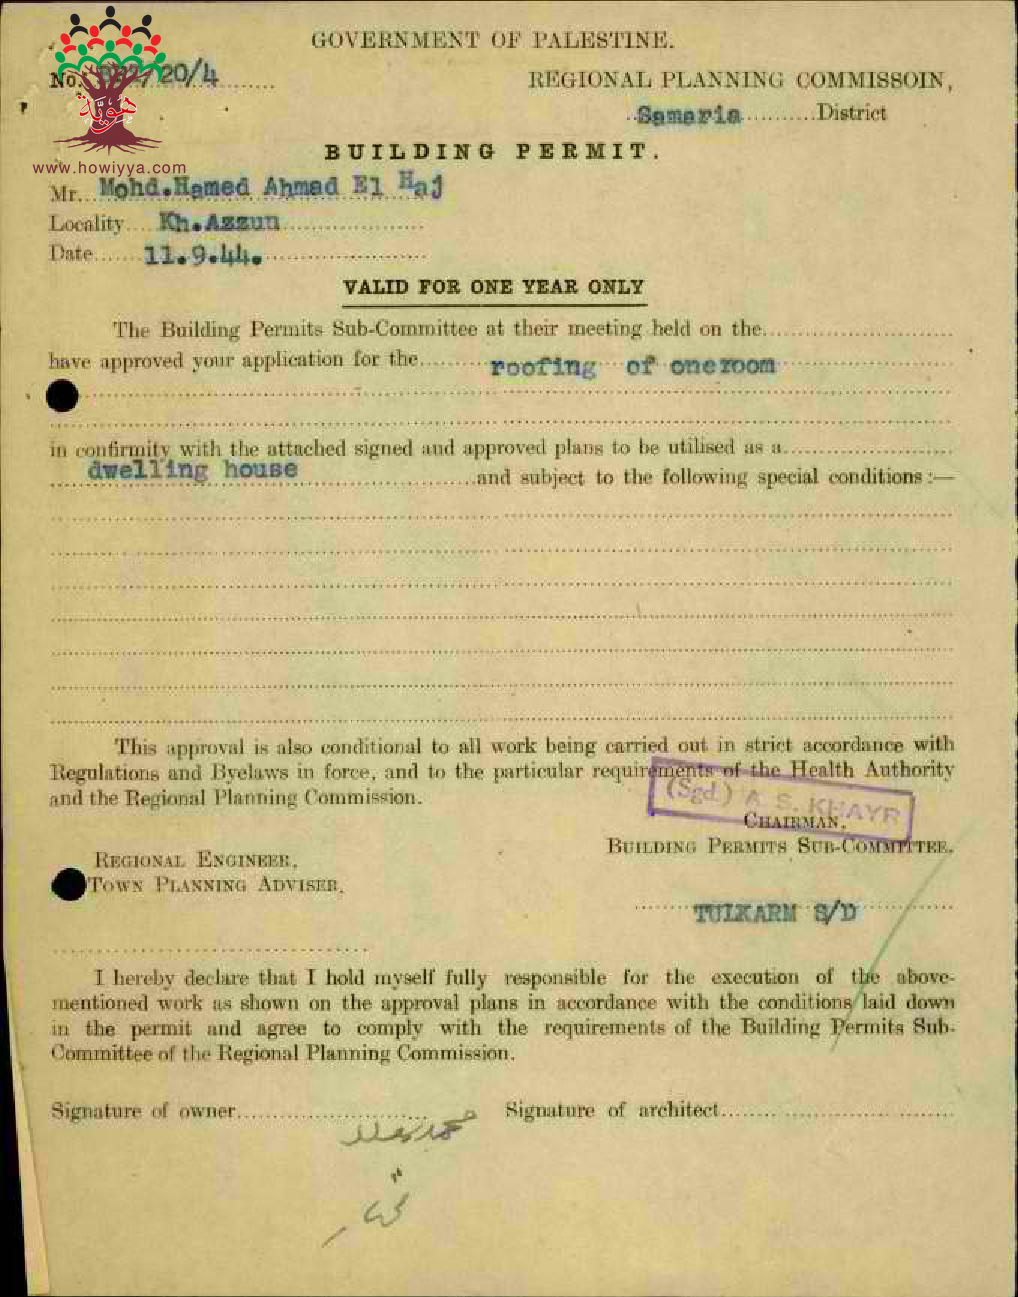 GOVERNMENT OF PALESTINE.
No. 20/4
REGIONAL PLANNING COMMISSOIN,
Samaria District
هوية
www.howiyya.com
BUILDING PERMIT.
Mr. Mohd.Hamed Ahmad El Haj
Locality Kh.Azzun
Date 11.9.44.
VALID FOR ONE YEAR ONLY
The Building Permits Sub-Committee at their meeting held on the
have approved your application for the roofing of oneroom
in confirmity with the attached signed and approved plans to be utilised as a
dwelling house and subject to the following special conditions :—
This approval is also conditional to all work being carried out in strict accordance with
Regulations and Byelaws in force, and to the particular requirements of the Health Authority
and the Regional Planning Commission.
(Sgd.) A. S. KHAYR
CHAIRMAN,
BUILDING PERMITS SUB-COMMITTEE.
REGIONAL ENGINEER,
TOWN PLANNING ADVISER,
TULKARM S/D
I hereby declare that I hold myself fully responsible for the execution of the above-
mentioned work as shown on the approval plans in accordance with the conditions laid down
in the permit and agree to comply with the requirements of the Building Permits Sub-
Committee of the Regional Planning Commission.
Signature of owner
Signature of architect
محمد